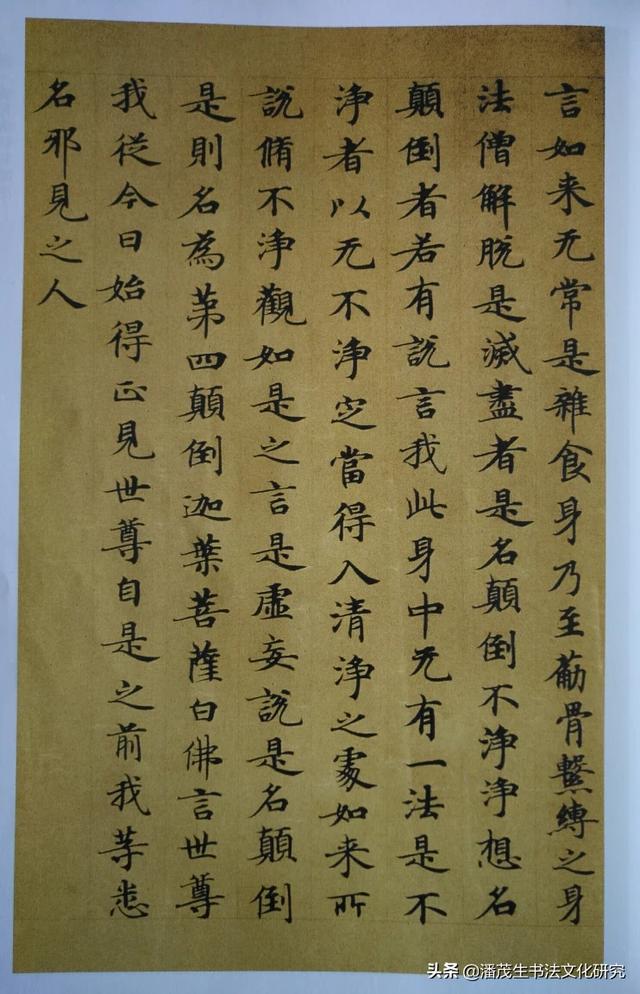 言如来无常是雜食身乃至葡骨繫縛之身
法僧解脱是滅盡者是名顛倒不淨淨想名
顛倒者若有說言我此身中无有一法是不
淨者以无不淨定當得入清淨之處如来所
說脩不淨觀如是之言是虛妄說是名顛倒
是則名為第四顛倒迦葉菩薩白佛言世尊
我從今日始得正見世尊自是之前我等悉
名邪見之人
头条 @潘茂生书法文化研究